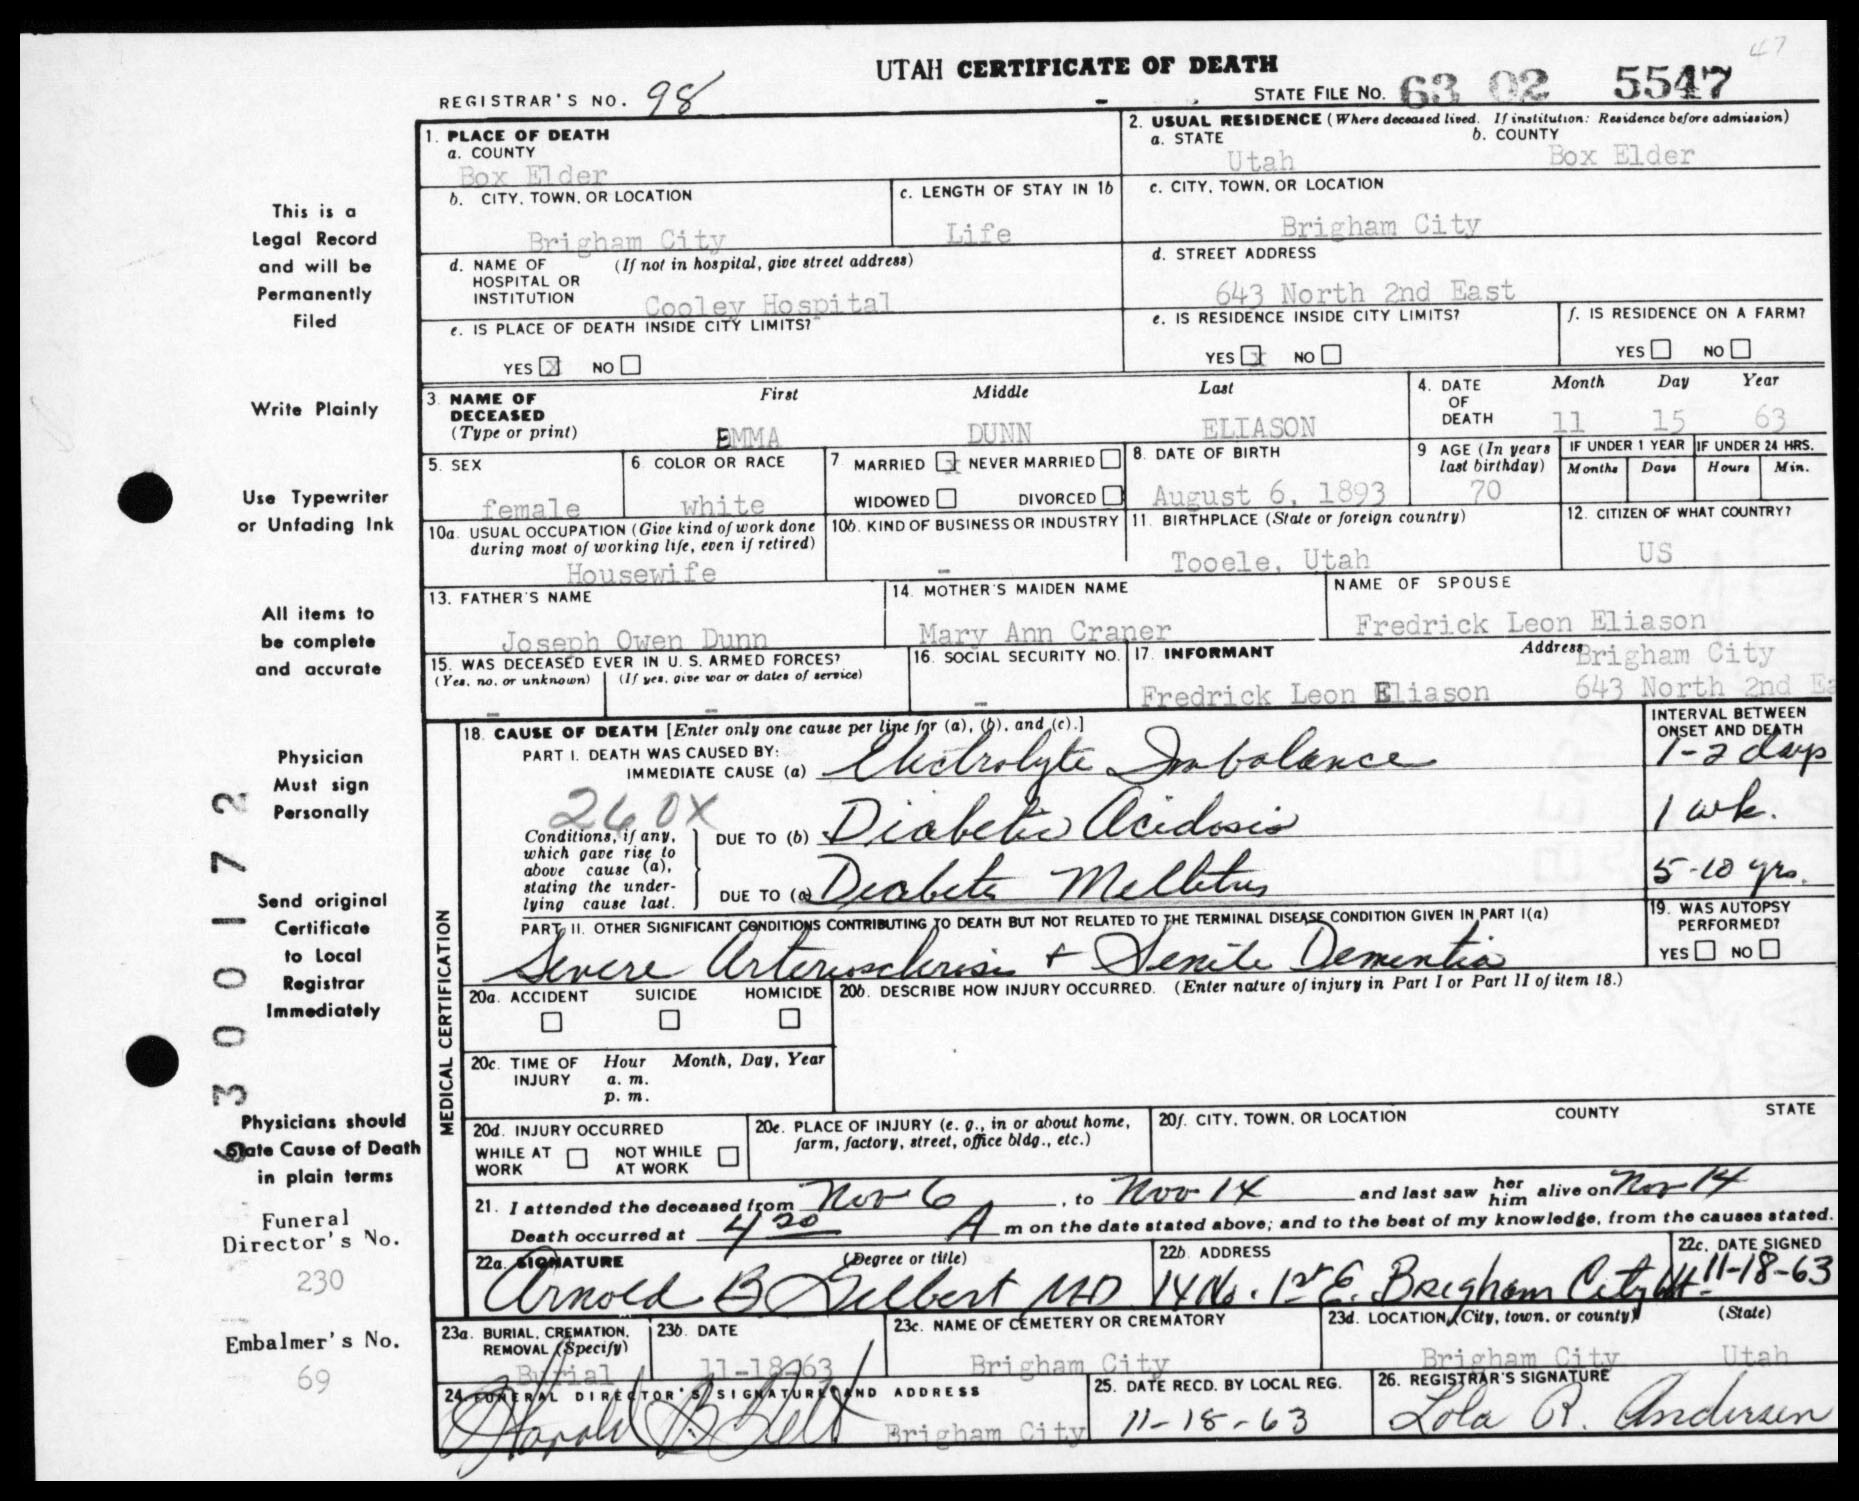 47
UTAH CERTIFICATE OF DEATH
REGISTRAR'S NO. 98
STATE FILE NO. 63 02 5547
1. PLACE OF DEATH
a. COUNTY
Box Elder
2. USUAL RESIDENCE (Where deceased lived. If institution: Residence before admission)
a. STATE b. COUNTY
Utah Box Elder
b. CITY, TOWN, OR LOCATION
Brigham City
c. LENGTH OF STAY IN 1b
Life
c. CITY, TOWN, OR LOCATION
Brigham City
d. NAME OF HOSPITAL OR INSTITUTION (If not in hospital, give street address)
Cooley Hospital
d. STREET ADDRESS
643 North 2nd East
e. IS PLACE OF DEATH INSIDE CITY LIMITS?
YES X NO
e. IS RESIDENCE INSIDE CITY LIMITS?
YES X NO
f. IS RESIDENCE ON A FARM?
YES NO
3. NAME OF DECEASED (Type or print)
First Middle Last
EMMA DUNN ELIASON
4. DATE OF DEATH
Month Day Year
11 15 63
5. SEX
female
6. COLOR OR RACE
white
7. MARRIED X NEVER MARRIED
WIDOWED DIVORCED
8. DATE OF BIRTH
August 6, 1893
9 AGE (In years last birthday)
70
IF UNDER 1 YEAR
Months Days
IF UNDER 24 HRS.
Hours Min.
10a. USUAL OCCUPATION (Give kind of work done during most of working life, even if retired)
Housewife
10b. KIND OF BUSINESS OR INDUSTRY
-
11. BIRTHPLACE (State or foreign country)
Tooele, Utah
12. CITIZEN OF WHAT COUNTRY?
US
13. FATHER'S NAME
Joseph Owen Dunn
14. MOTHER'S MAIDEN NAME
Mary Ann Craner
NAME OF SPOUSE
Fredrick Leon Eliason
15. WAS DECEASED EVER IN U. S. ARMED FORCES?
(Yes, no, or unknown) (If yes, give war or dates of service)
- -
16. SOCIAL SECURITY NO.
-
17. INFORMANT
Fredrick Leon Eliason
Address
Brigham City
643 North 2nd Ea
MEDICAL CERTIFICATION
18. CAUSE OF DEATH [Enter only one cause per line for (a), (b), and (c).]
INTERVAL BETWEEN ONSET AND DEATH
PART I. DEATH WAS CAUSED BY:
IMMEDIATE CAUSE (a) Electrolyte Imbalance 1-2 days
260X
Conditions, if any, which gave rise to above cause (a), stating the underlying cause last.
DUE TO (b) Diabetic Acidosis 1 wk.
DUE TO (c) Diabetes Mellitus 5-10 yrs.
PART II. OTHER SIGNIFICANT CONDITIONS CONTRIBUTING TO DEATH BUT NOT RELATED TO THE TERMINAL DISEASE CONDITION GIVEN IN PART I(a)
Severe Arteriosclerosis + Senile Dementia
19. WAS AUTOPSY PERFORMED?
YES NO
20a. ACCIDENT SUICIDE HOMICIDE
20b. DESCRIBE HOW INJURY OCCURRED. (Enter nature of injury in Part I or Part II of item 18.)
20c. TIME OF INJURY Hour Month, Day, Year
a. m.
p. m.
20d. INJURY OCCURRED
WHILE AT WORK NOT WHILE AT WORK
20e. PLACE OF INJURY (e. g., in or about home, farm, factory, street, office bldg., etc.)
20f. CITY, TOWN, OR LOCATION COUNTY STATE
21. I attended the deceased from Nov 6, to Nov 14 and last saw her him alive on Nov 14
Death occurred at 4 20 A m on the date stated above; and to the best of my knowledge, from the causes stated.
22a. SIGNATURE (Degree or title)
Arnold B Gilbert MD
22b. ADDRESS
14 No. 1st E. Brigham City Ut.
22c. DATE SIGNED
11-18-63
23a. BURIAL, CREMATION, REMOVAL (Specify)
Burial
23b. DATE
11-18-63
23c. NAME OF CEMETERY OR CREMATORY
Brigham City
23d. LOCATION (City, town, or county) (State)
Brigham City Utah
24. FUNERAL DIRECTOR'S SIGNATURE AND ADDRESS
Harold B Felt
Brigham City
25. DATE RECD. BY LOCAL REG.
11-18-63
26. REGISTRAR'S SIGNATURE
Lola R. Andersen
This is a
Legal Record
and will be
Permanently
Filed
Write Plainly
Use Typewriter
or Unfading Ink
All items to
be complete
and accurate
Physician
Must sign
Personally
Send original
Certificate
to Local
Registrar
Immediately
Physicians should
State Cause of Death
in plain terms
Funeral
Director's No.
230
Embalmer's No.
69
6300172